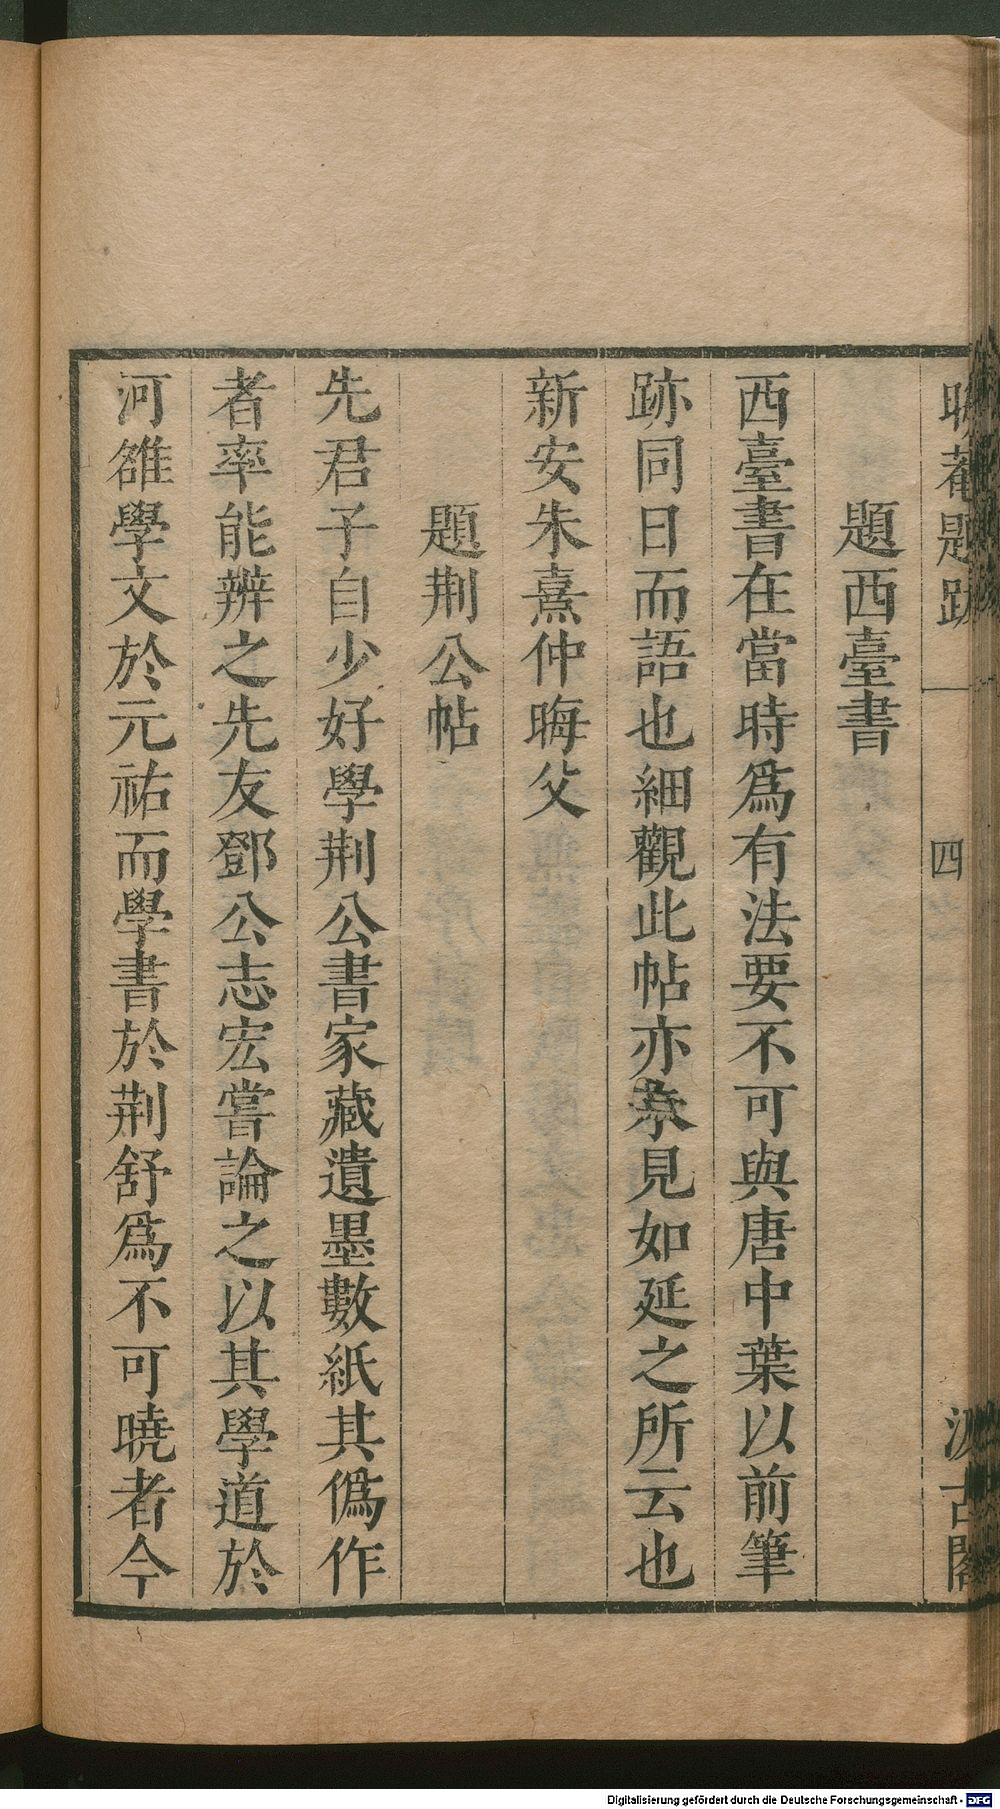 晦菴題跋 四 汲古閣
題西臺書
西臺書在當時爲有法要不可與唐中葉以前筆
跡同日而語也細觀此帖亦未見如延之所云也
新安朱熹仲晦父
題荆公帖
先君子自少好學荆公書家藏遺墨數紙其僞作
者率能辨之先友鄧公志宏嘗論之以其學道於
河雒學文於元祐而學書於荆舒爲不可曉者今
Digitalisierung gefördert durch die Deutsche Forschungsgemeinschaft - DFG